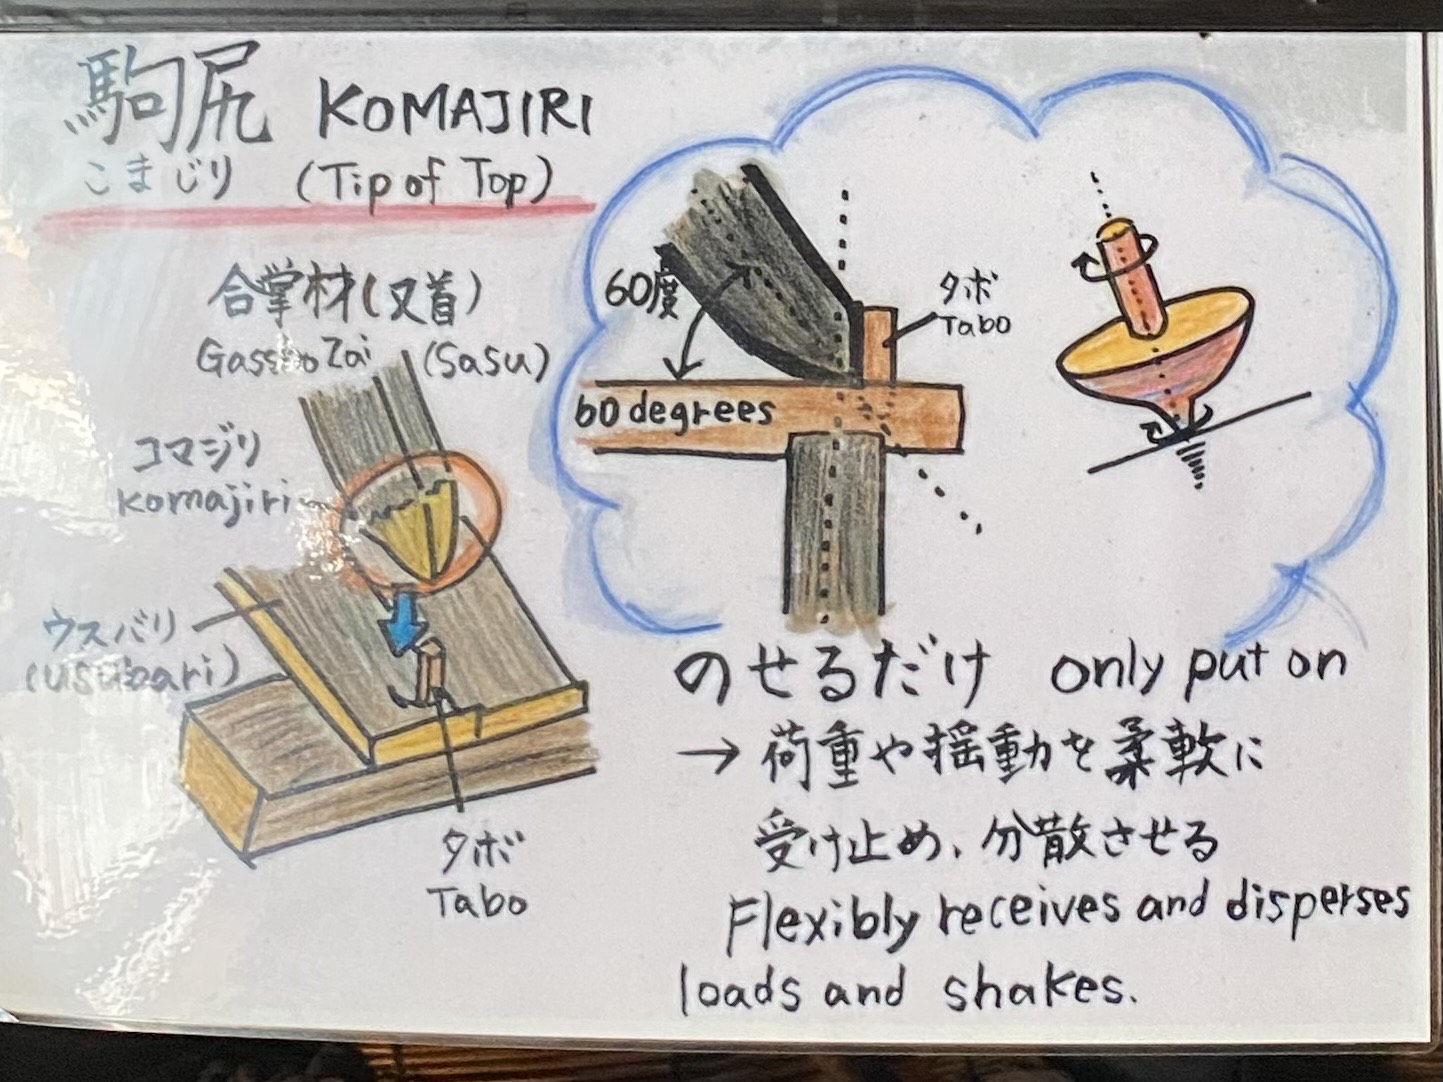 駒尻 KOMAJIRI
こまじり (Tip of Top)
合掌材(又首)
Gassho Zai (Sasu)
コマジリ
komajiri
ウスバリ
(usubari)
タボ
Tabo
60度
60 degrees
タボ
Tabo
のせるだけ only put on
→荷重や揺動を柔軟に
受け止め、分散させる
Flexibly receives and disperses
loads and shakes.